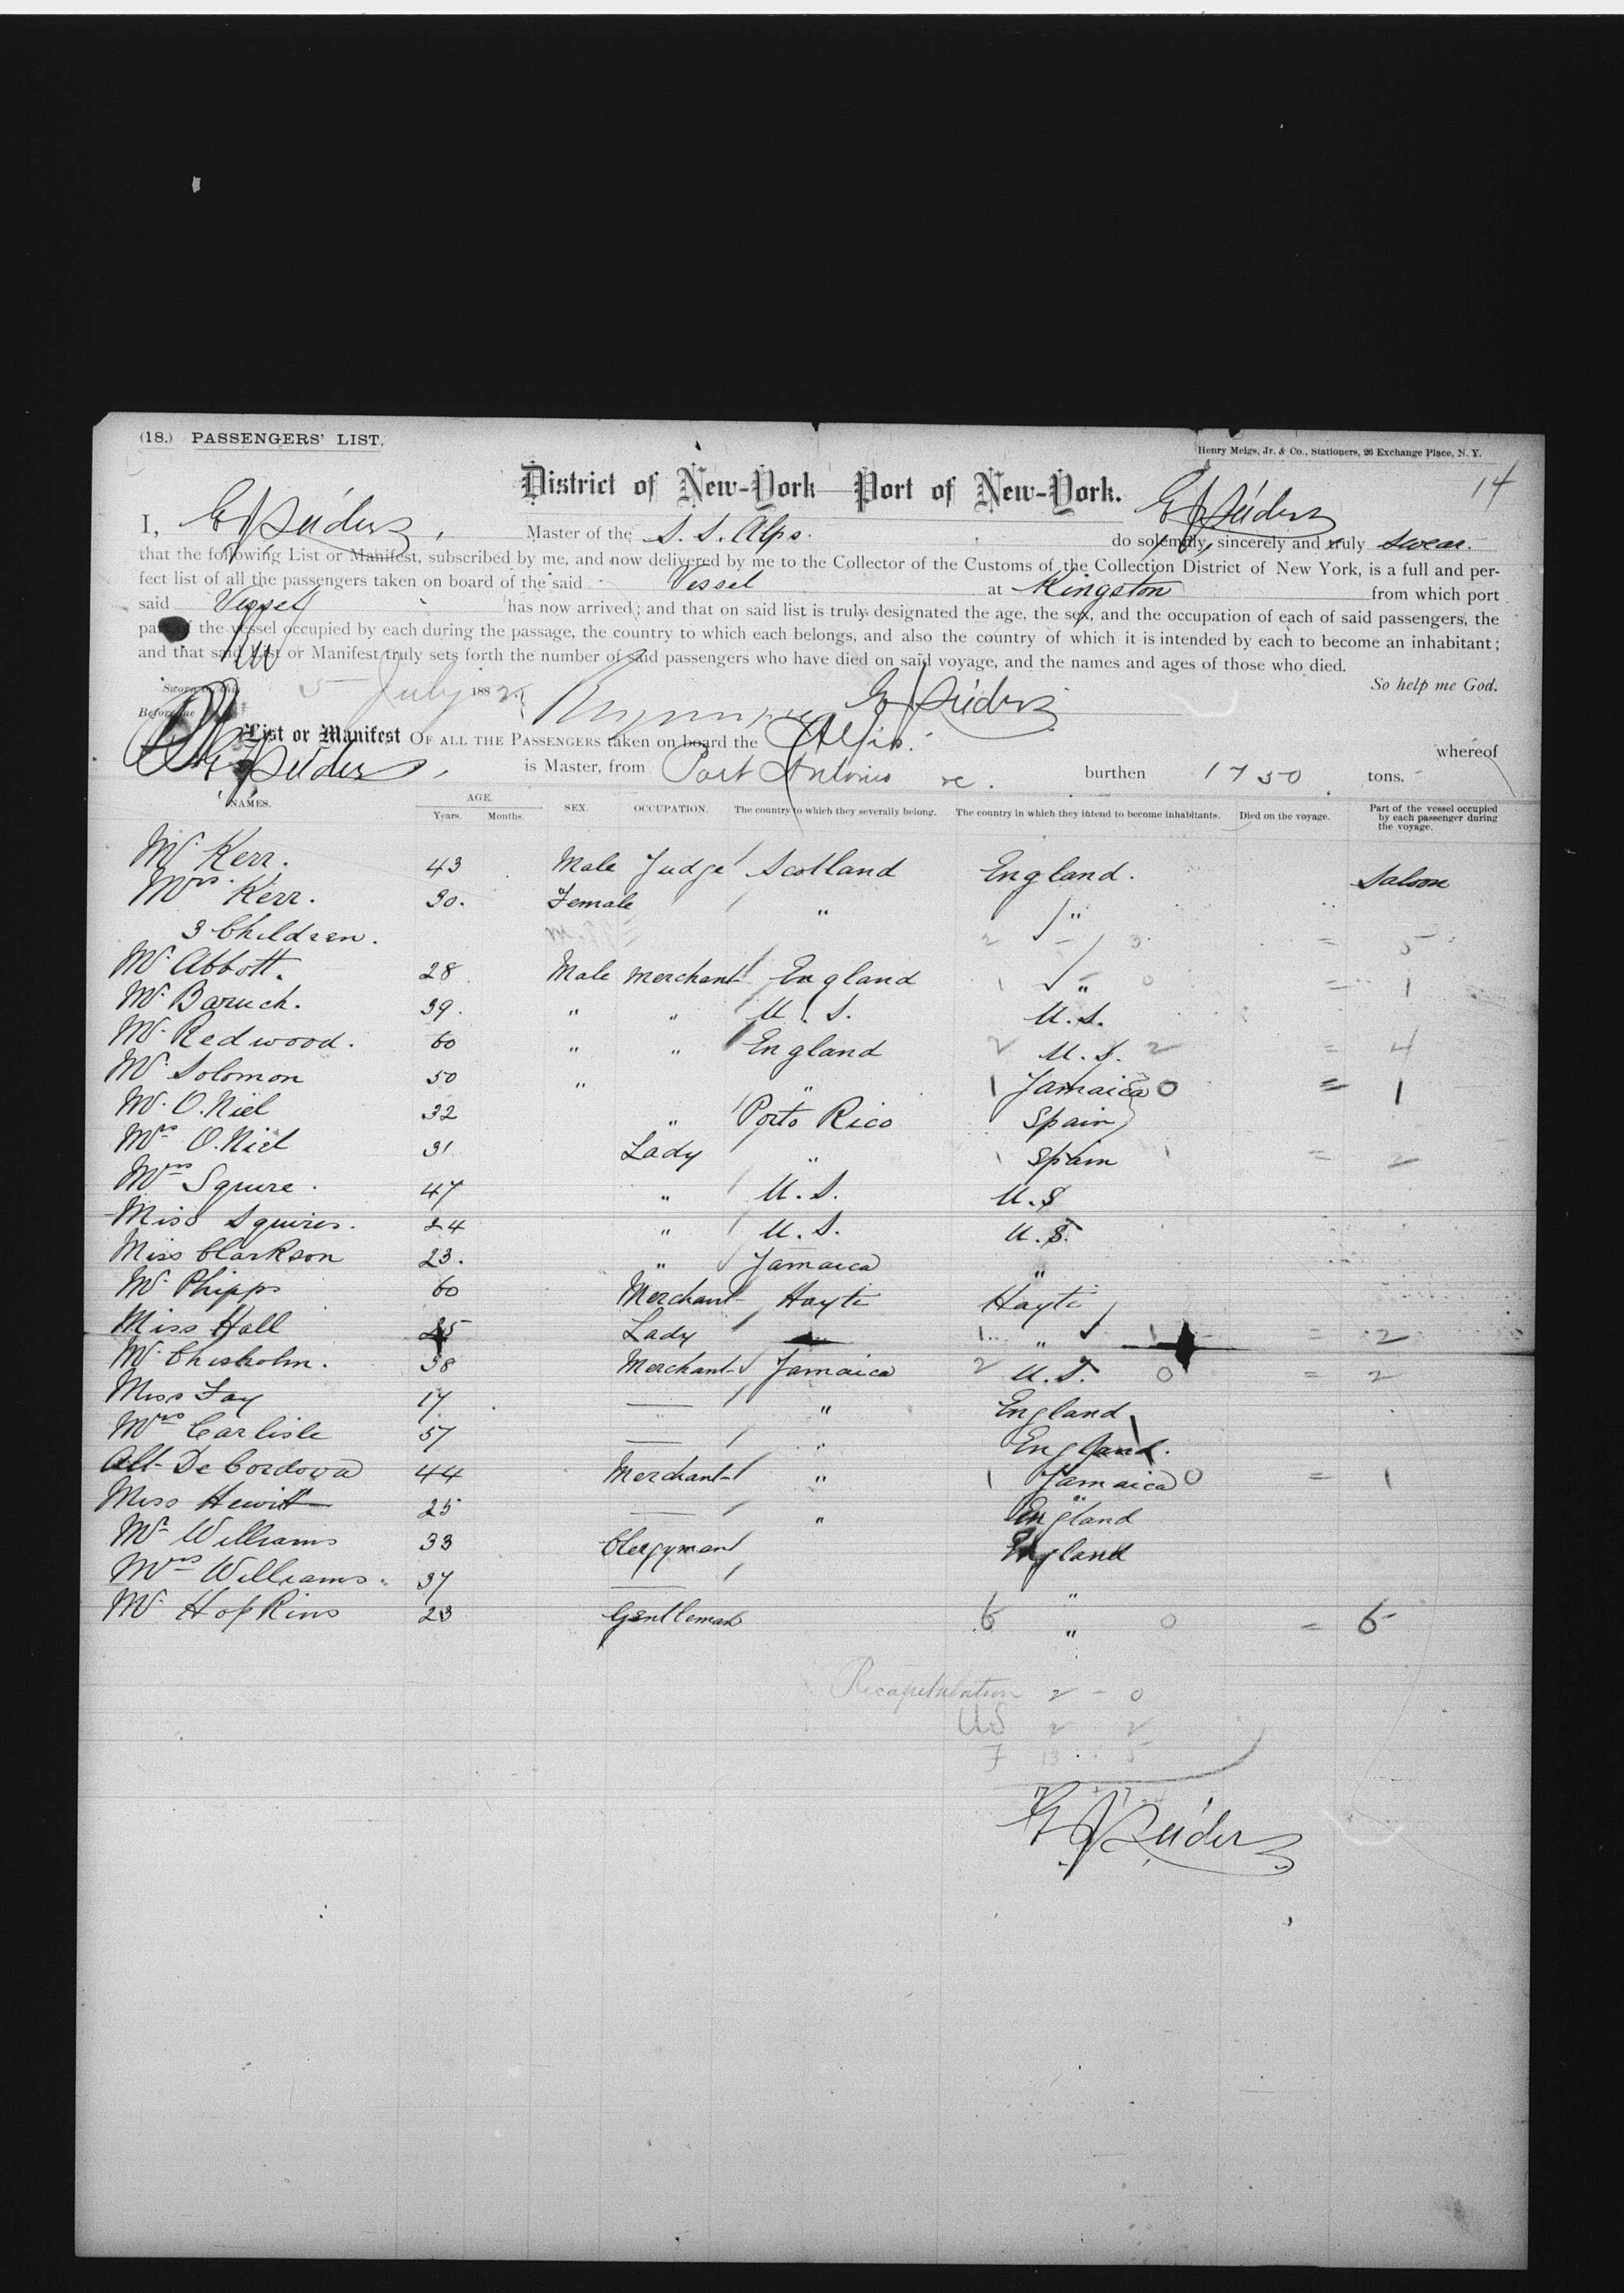 (18.) PASSENGERS' LIST.
Henry Meigs, Jr. & Co., Stationers, 26 Exchange Place, N. Y.
14
District of New-York—Port of New-York.
I, Master of the S. S. Alps. do solemnly, sincerely and truly swear.
that the following List or Manifest, subscribed by me, and now delivered by me to the Collector of the Customs of the Collection District of New York, is a full and per-
fect list of all the passengers taken on board of the said Vessel at Kingston from which port
said Vessel has now arrived; and that on said list is truly designated the age, the sex, and the occupation of each of said passengers, the
part of the vessel occupied by each during the passage, the country to which each belongs, and also the country of which it is intended by each to become an inhabitant;
and that said List or Manifest truly sets forth the number of said passengers who have died on said voyage, and the names and ages of those who died.
So help me God.
Sworn to this 5 July 1882
Before me
List or Manifest OF ALL THE PASSENGERS taken on board the Alps. whereof
is Master, from Port Antonio burthen 1750 tons.
NAMES. AGE. Years. Months. SEX. OCCUPATION. The country to which they severally belong. The country in which they intend to become inhabitants. Died on the voyage. Part of the vessel occupied by each passenger during the voyage.
Mr. Kerr. 43 Male Judge Scotland England. Saloon
Mrs. Kerr. 30. Female " "
3 Children. 2 - 3 = 5
Mr. Abbott. 28 Male Merchant England 1 " 0 = 1
Mr. Baruch. 39. " " U. S. U. S.
Mr. Redwood. 60 " " England 2 U. S. 2 = 4
Mr. Solomon 50 " " 1 Jamaica 0 = 1
Mr. O.Niel 32 " Porto Rico Spain
Mrs O.Niel 31 Lady " 1 Spain 1 = 2
Mrs Squire. 47 " U. S. U. S
Miss Squires. 24 " U. S. U. S.
Miss Clarkson 23. " Jamaica "
Mr. Phipps 60 Merchant Hayti Hayti
Miss Hall 25 Lady 1 " 1 = 2
Mr. Chisholm. 38 Merchant Jamaica 2 U. S. 0 = 2
Miss Fay 17 — " England
Mrs Carlisle 57 — " England.
Alt. De Cordova 44 Merchant " 1 Jamaica 0 = 1
Miss Hewitt 25 — " England
Mr Williams 33 Clergyman England
Mrs Williams. 37 — "
Mr. Hopkins 23 Gentleman 6 " 0 = 6
Recapitulation 2 - 0
US 2 2
F 13 5
17 + 7